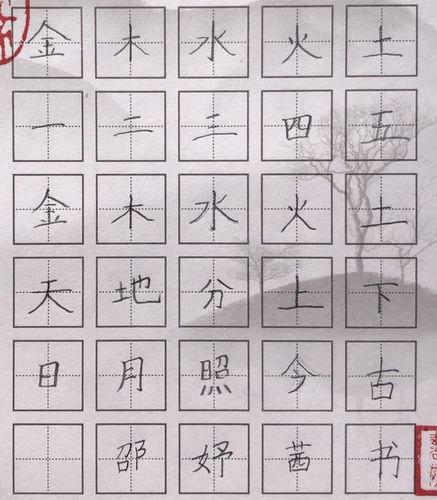 金木水火土
一二三四五
金木水火土
天地分上下
日月照今古
邵妤茜书